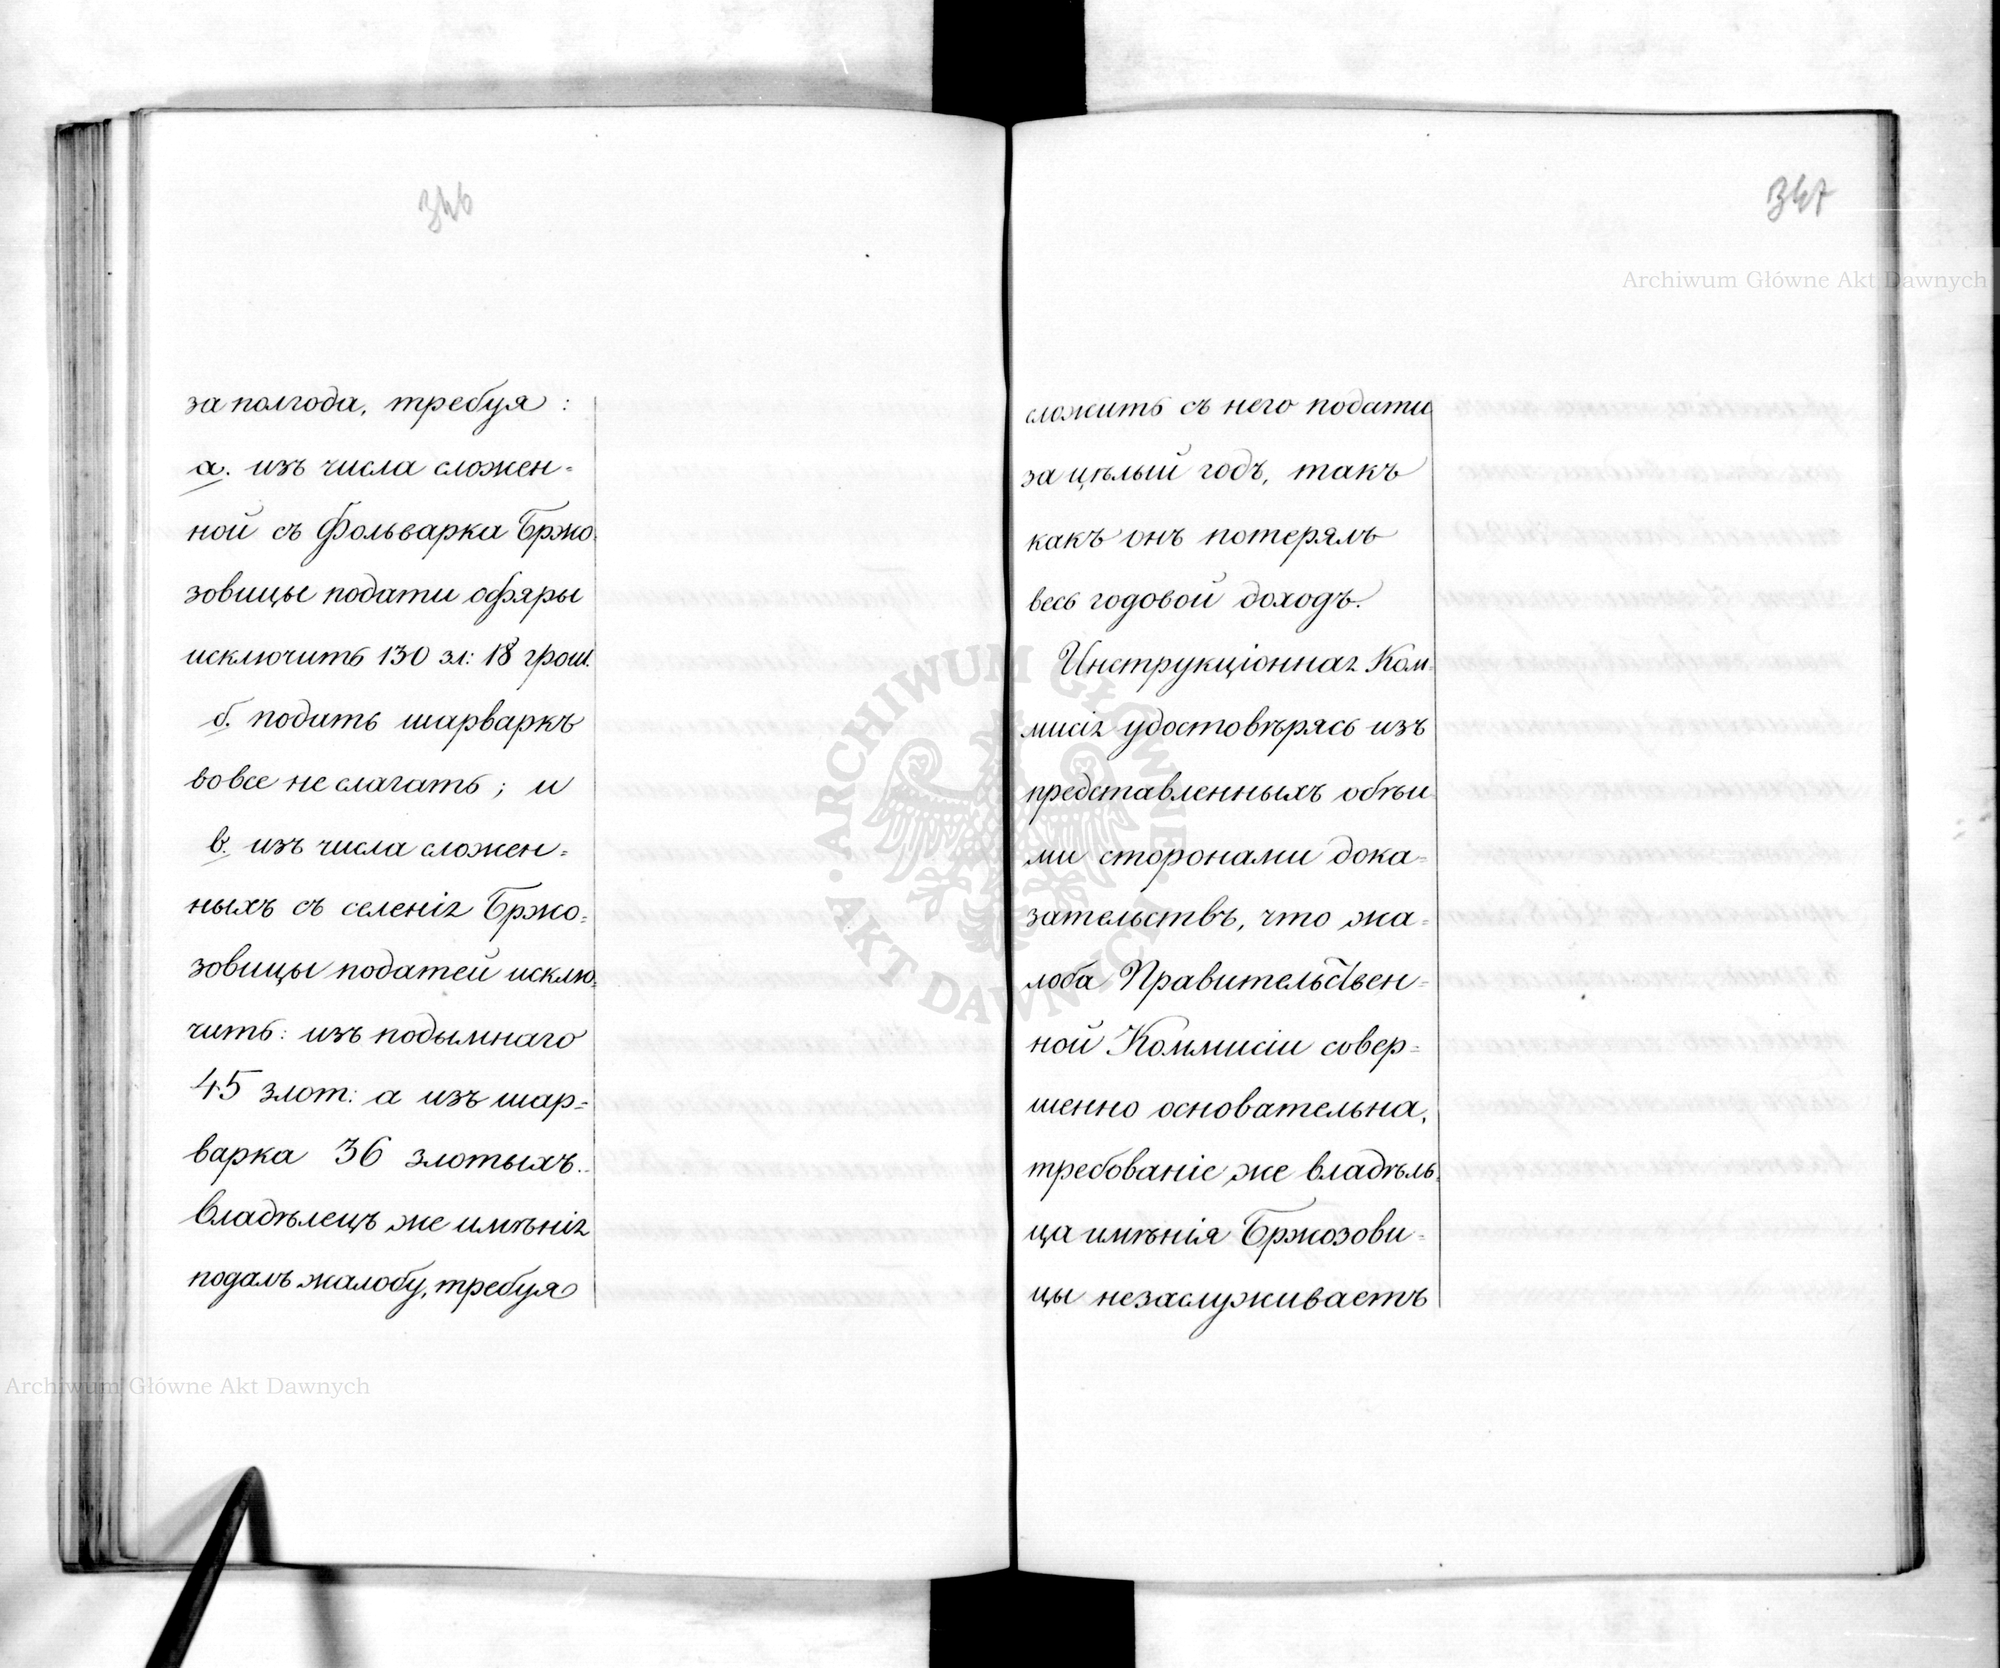 346
за полгода, требуя :
а. изъ числа сложен=
ной съ Фольварка Бржо=
зовицы подати офяры
исключить 130 зл: 18 грош.
б. подать шарваркъ
вовсе не слагать; и
в. изъ числа сложен=
ныхъ съ селенія Бржо=
зовицы податей исклю=
чить: изъ подымнаго
45 злот: а изъ шар=
варка 36 злотыхъ.
Владѣлецъ же имѣнія
подалъ жалобу, требуя
347
Archiwum Główne Akt Dawnych
сложить съ него подати
за цѣлый годъ, такъ
какъ онъ потерялъ
весь годовой доходъ.
Инструкціонная Ком=
мисія удостовѣрясь изъ
представленныхъ обѣи=
ми сторонами дока=
зательствъ, что жа=
лоба Правительствен=
ной Коммисіи совер=
шенно основательна,
требованіе же владѣль=
ца имѣнія Бржозови=
цы незаслуживаетъ
ARCHIWUM GŁÓWNE AKT DAWNYCH
Archiwum Główne Akt Dawnych